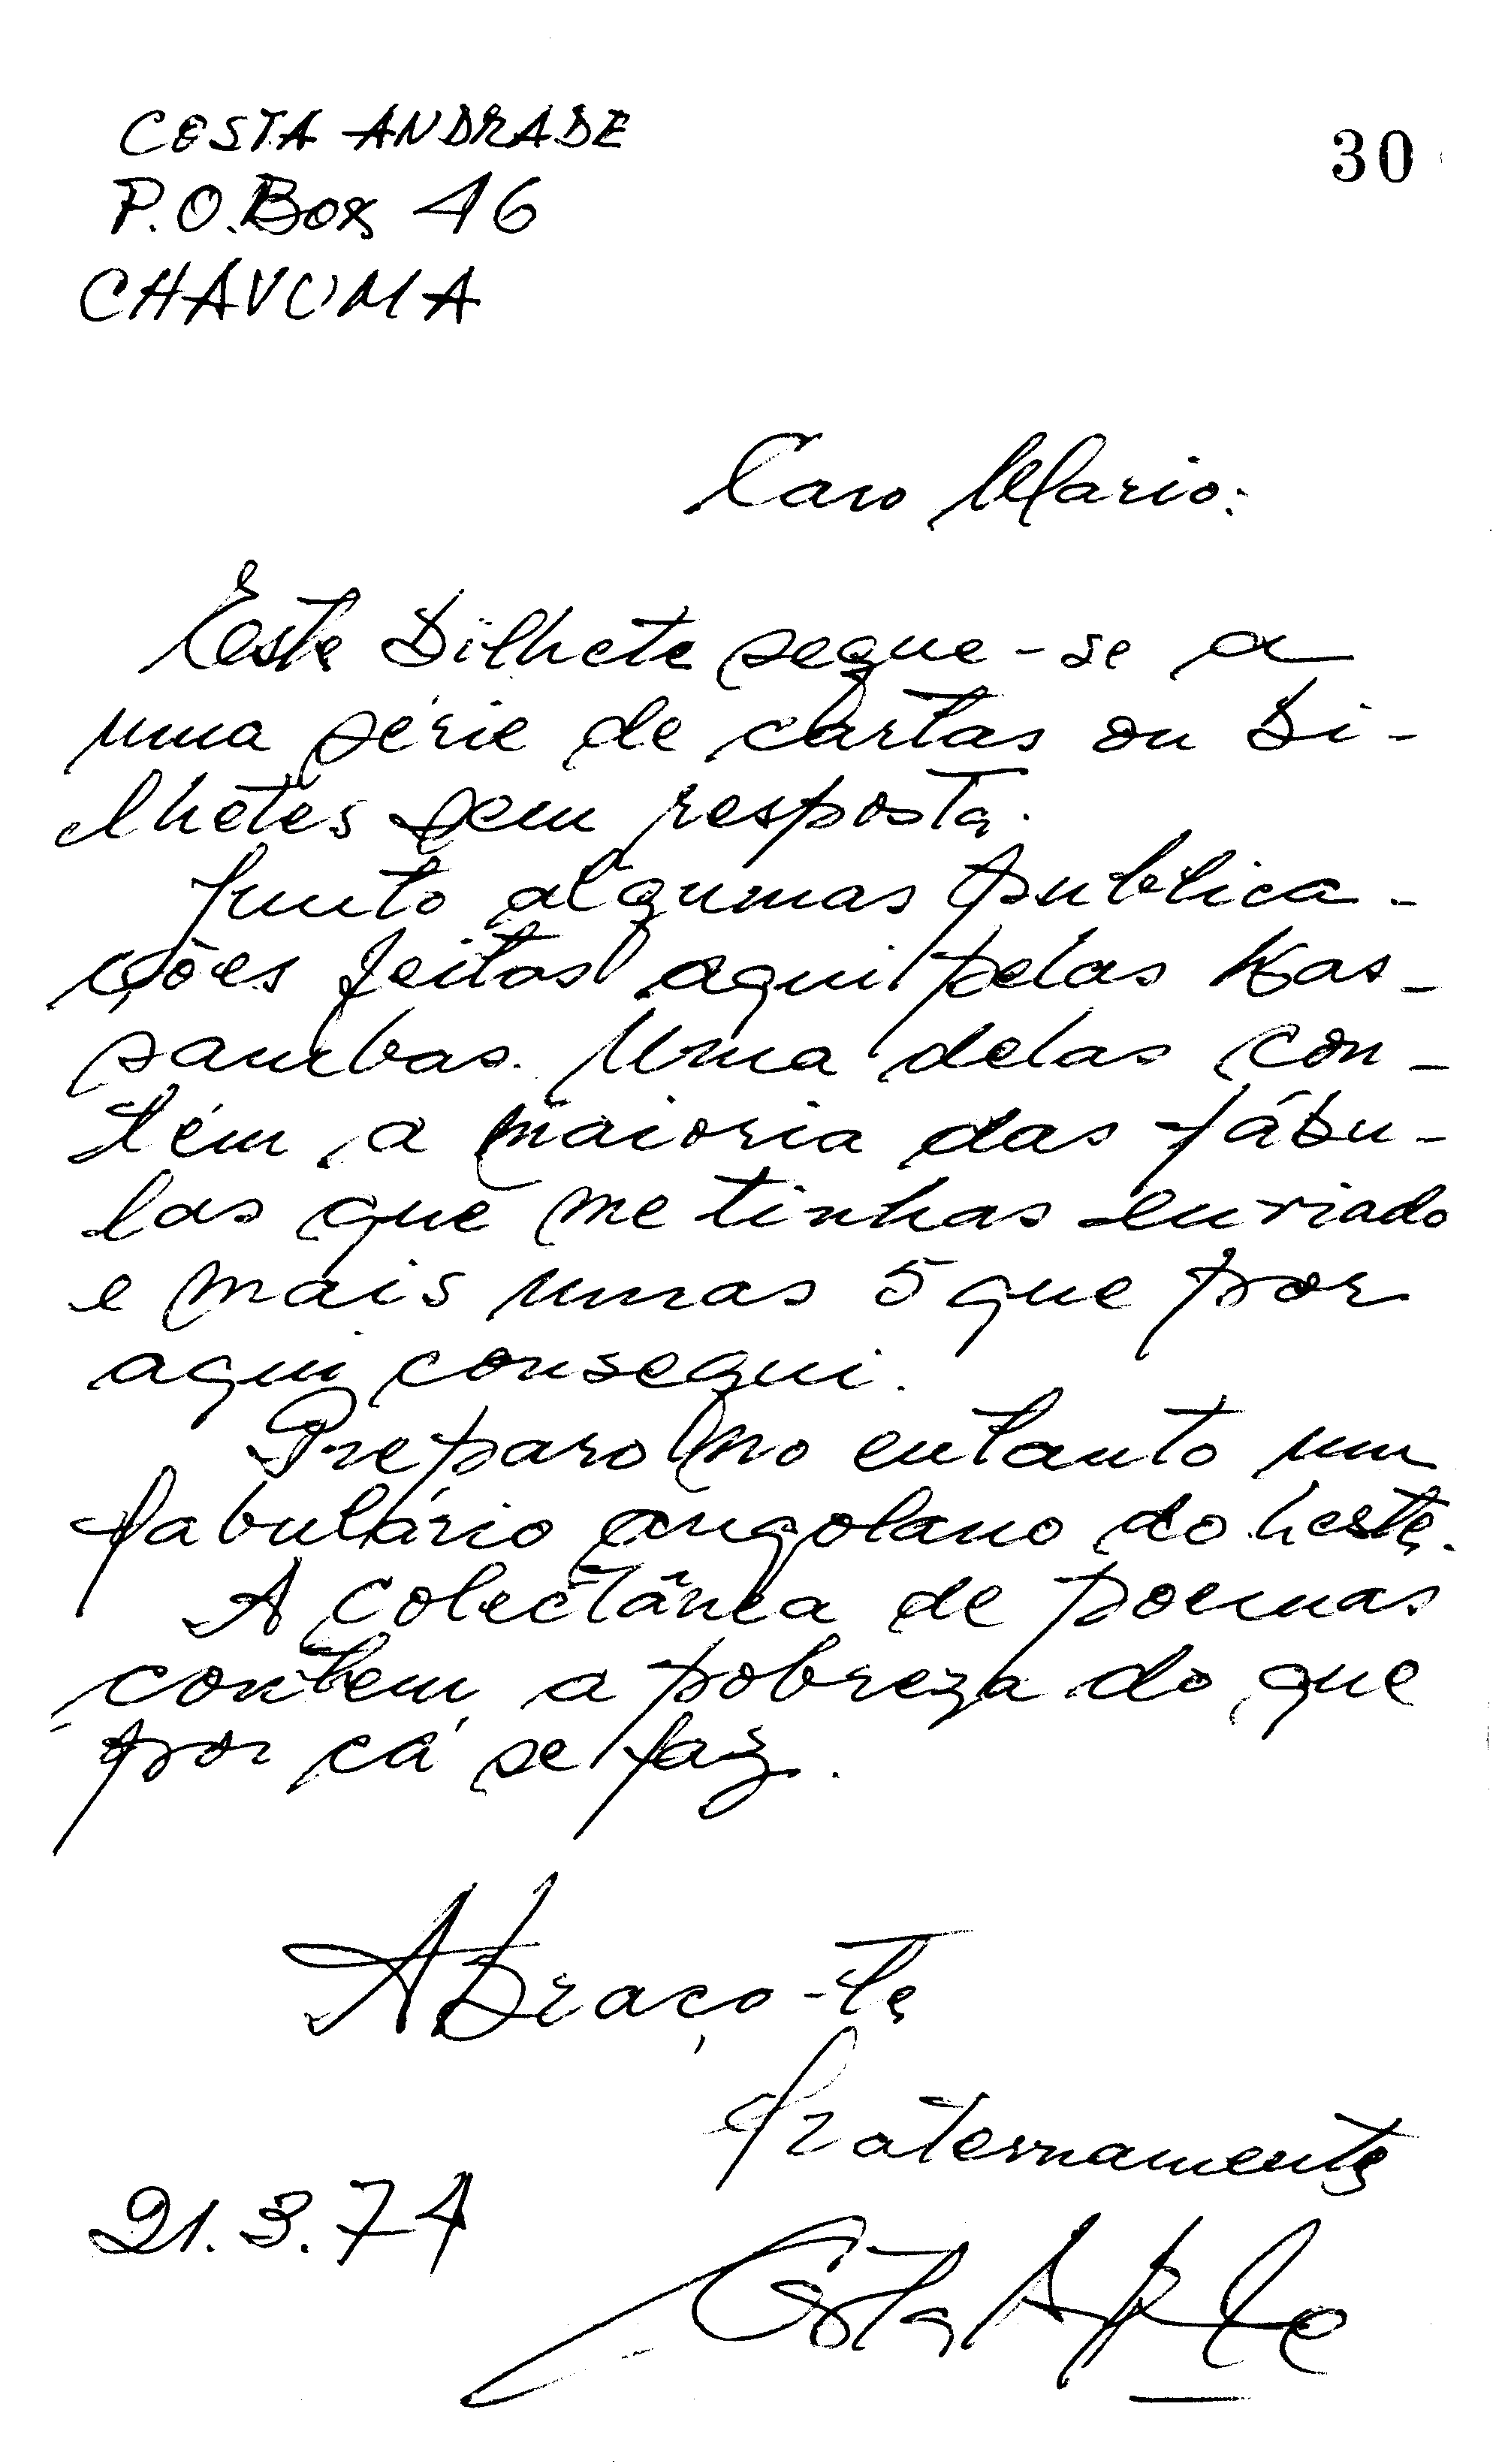 COSTA ANDRADE
30
P.O. Box 46
CHAVUMA
Caro Mario:
Este bilhete segue-se a
uma série de cartas ou bi-
lhetes sem resposta.
Junto algumas publica-
ções feitas aqui pelas Kas-
sambas. Uma delas con-
tém a maioria das fábu-
las que me tinhas enviado
e mais umas 5 que por
aqui consegui.
Preparo no entanto um
fabulário angolano do Leste.
A colectânea de poemas
contem a pobreza do que
por cá se faz.
Abraço-te
fraternamente
21.3.74
Costa